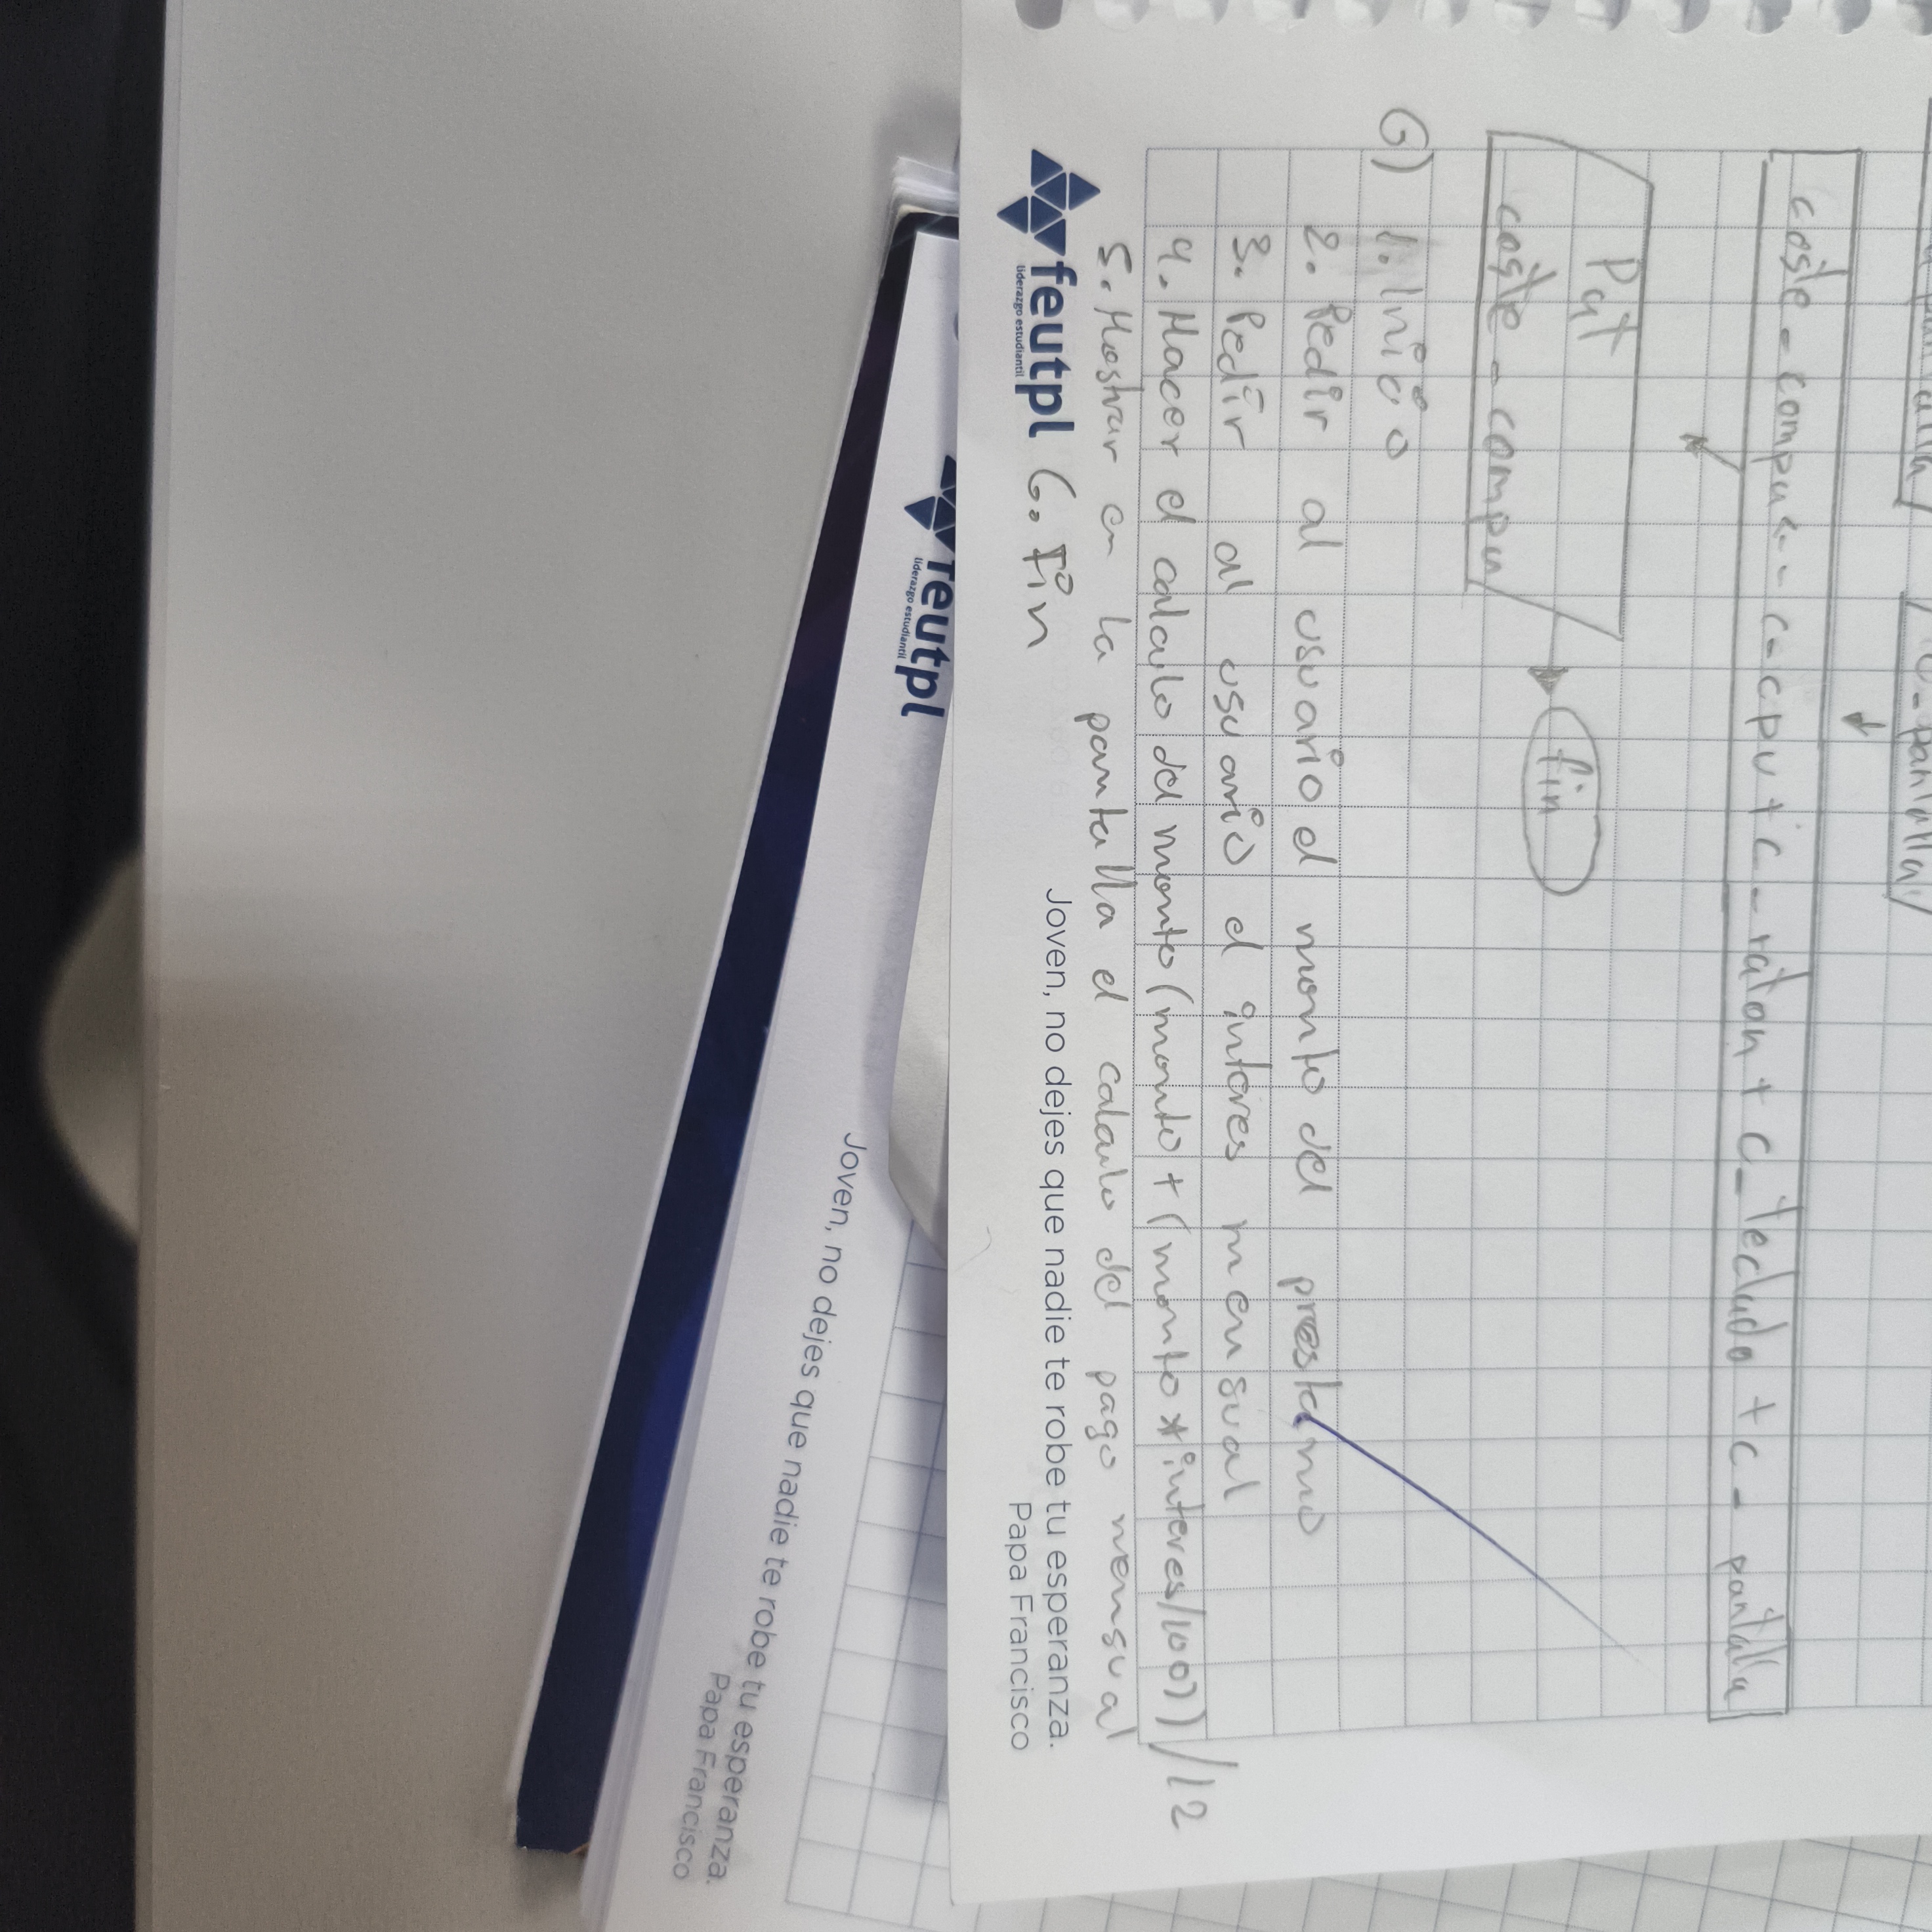 c-pantalla/
coste-compu <- c-cpu + c-raton + c-teclado + c-pantalla
Put
coste-compu
fin
6) 1. Inicio
2. Pedir al usuario el monto del prestamo
3. Pedir al usuario el interes mensual
4. Hacer el calculo del monto (monto + (monto * interes/100)) /12
5. Mostrar en la pantalla el calculo del pago mensual
6. Fin
feutpl
liderazgo estudiantil
Joven, no dejes que nadie te robe tu esperanza.
Papa Francisco
feutpl
liderazgo estudiantil
Joven, no dejes que nadie te robe tu esperanza.
Papa Francisco